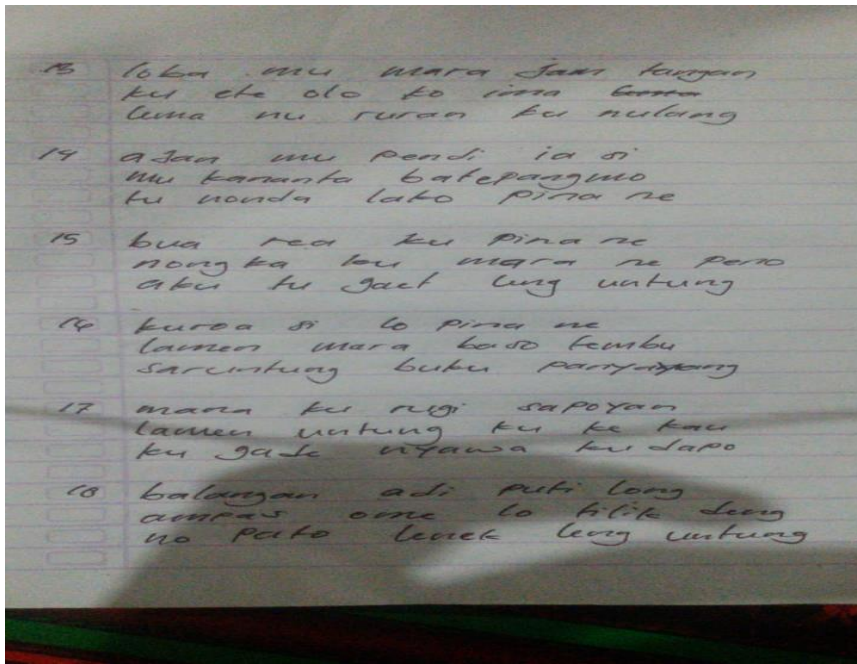 13 loba mu mara jaan tangan
ku ete olo ko ima
luma mu ruran ku nulang
14 ajan mu pendi ia si
mu kananta batepangmo
tu nonda lako pina ne
15 bua rea ku pina ne
nongka lou mara ne peno
aku tu gaet lung untung
16 kuroa si lo pina ne
lamen mara baso tembu
saruntung buku
17 mara ku rugi sapoyan
lamen untung ku ke kau
ku gade nyawa ku dapo
18 balangan adi puti long
ampas ome lo tilik deng
no pato lenek leng untung